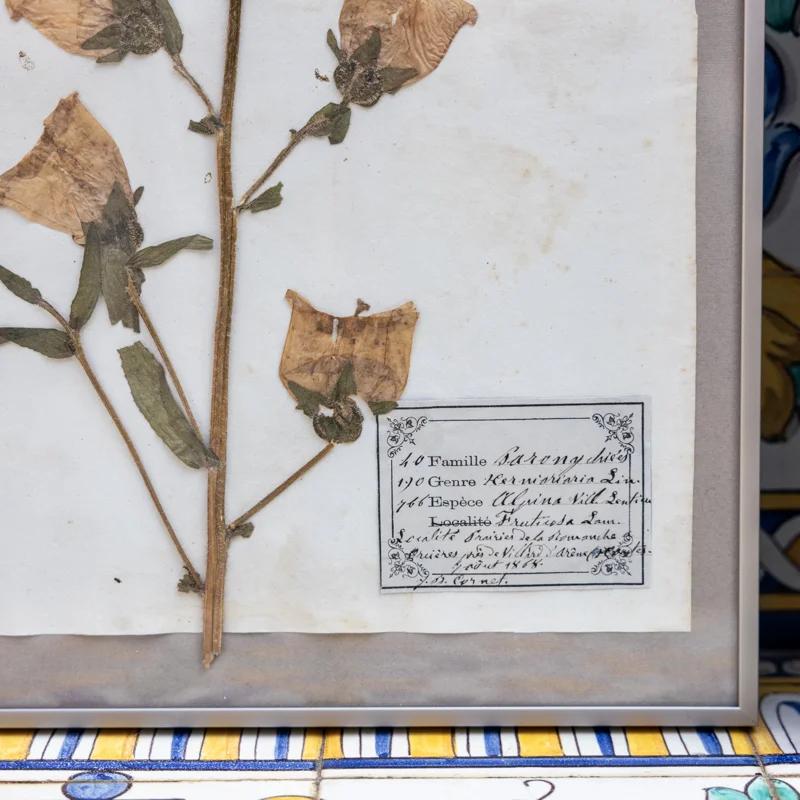 40 Famille Paronychiées
190 Genre Herniariaria Lin.
766 Espèce Alpina Vill.
Localité Fruticosa Lam.
Localité Prairies de la Romanche
près de Villard d'Arène
7 août 1868.
J. B. Cornet.